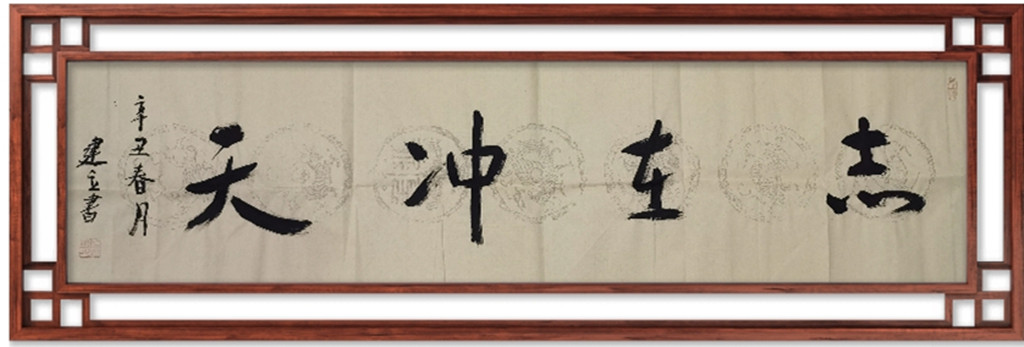 志在冲天
辛丑春月
建立書